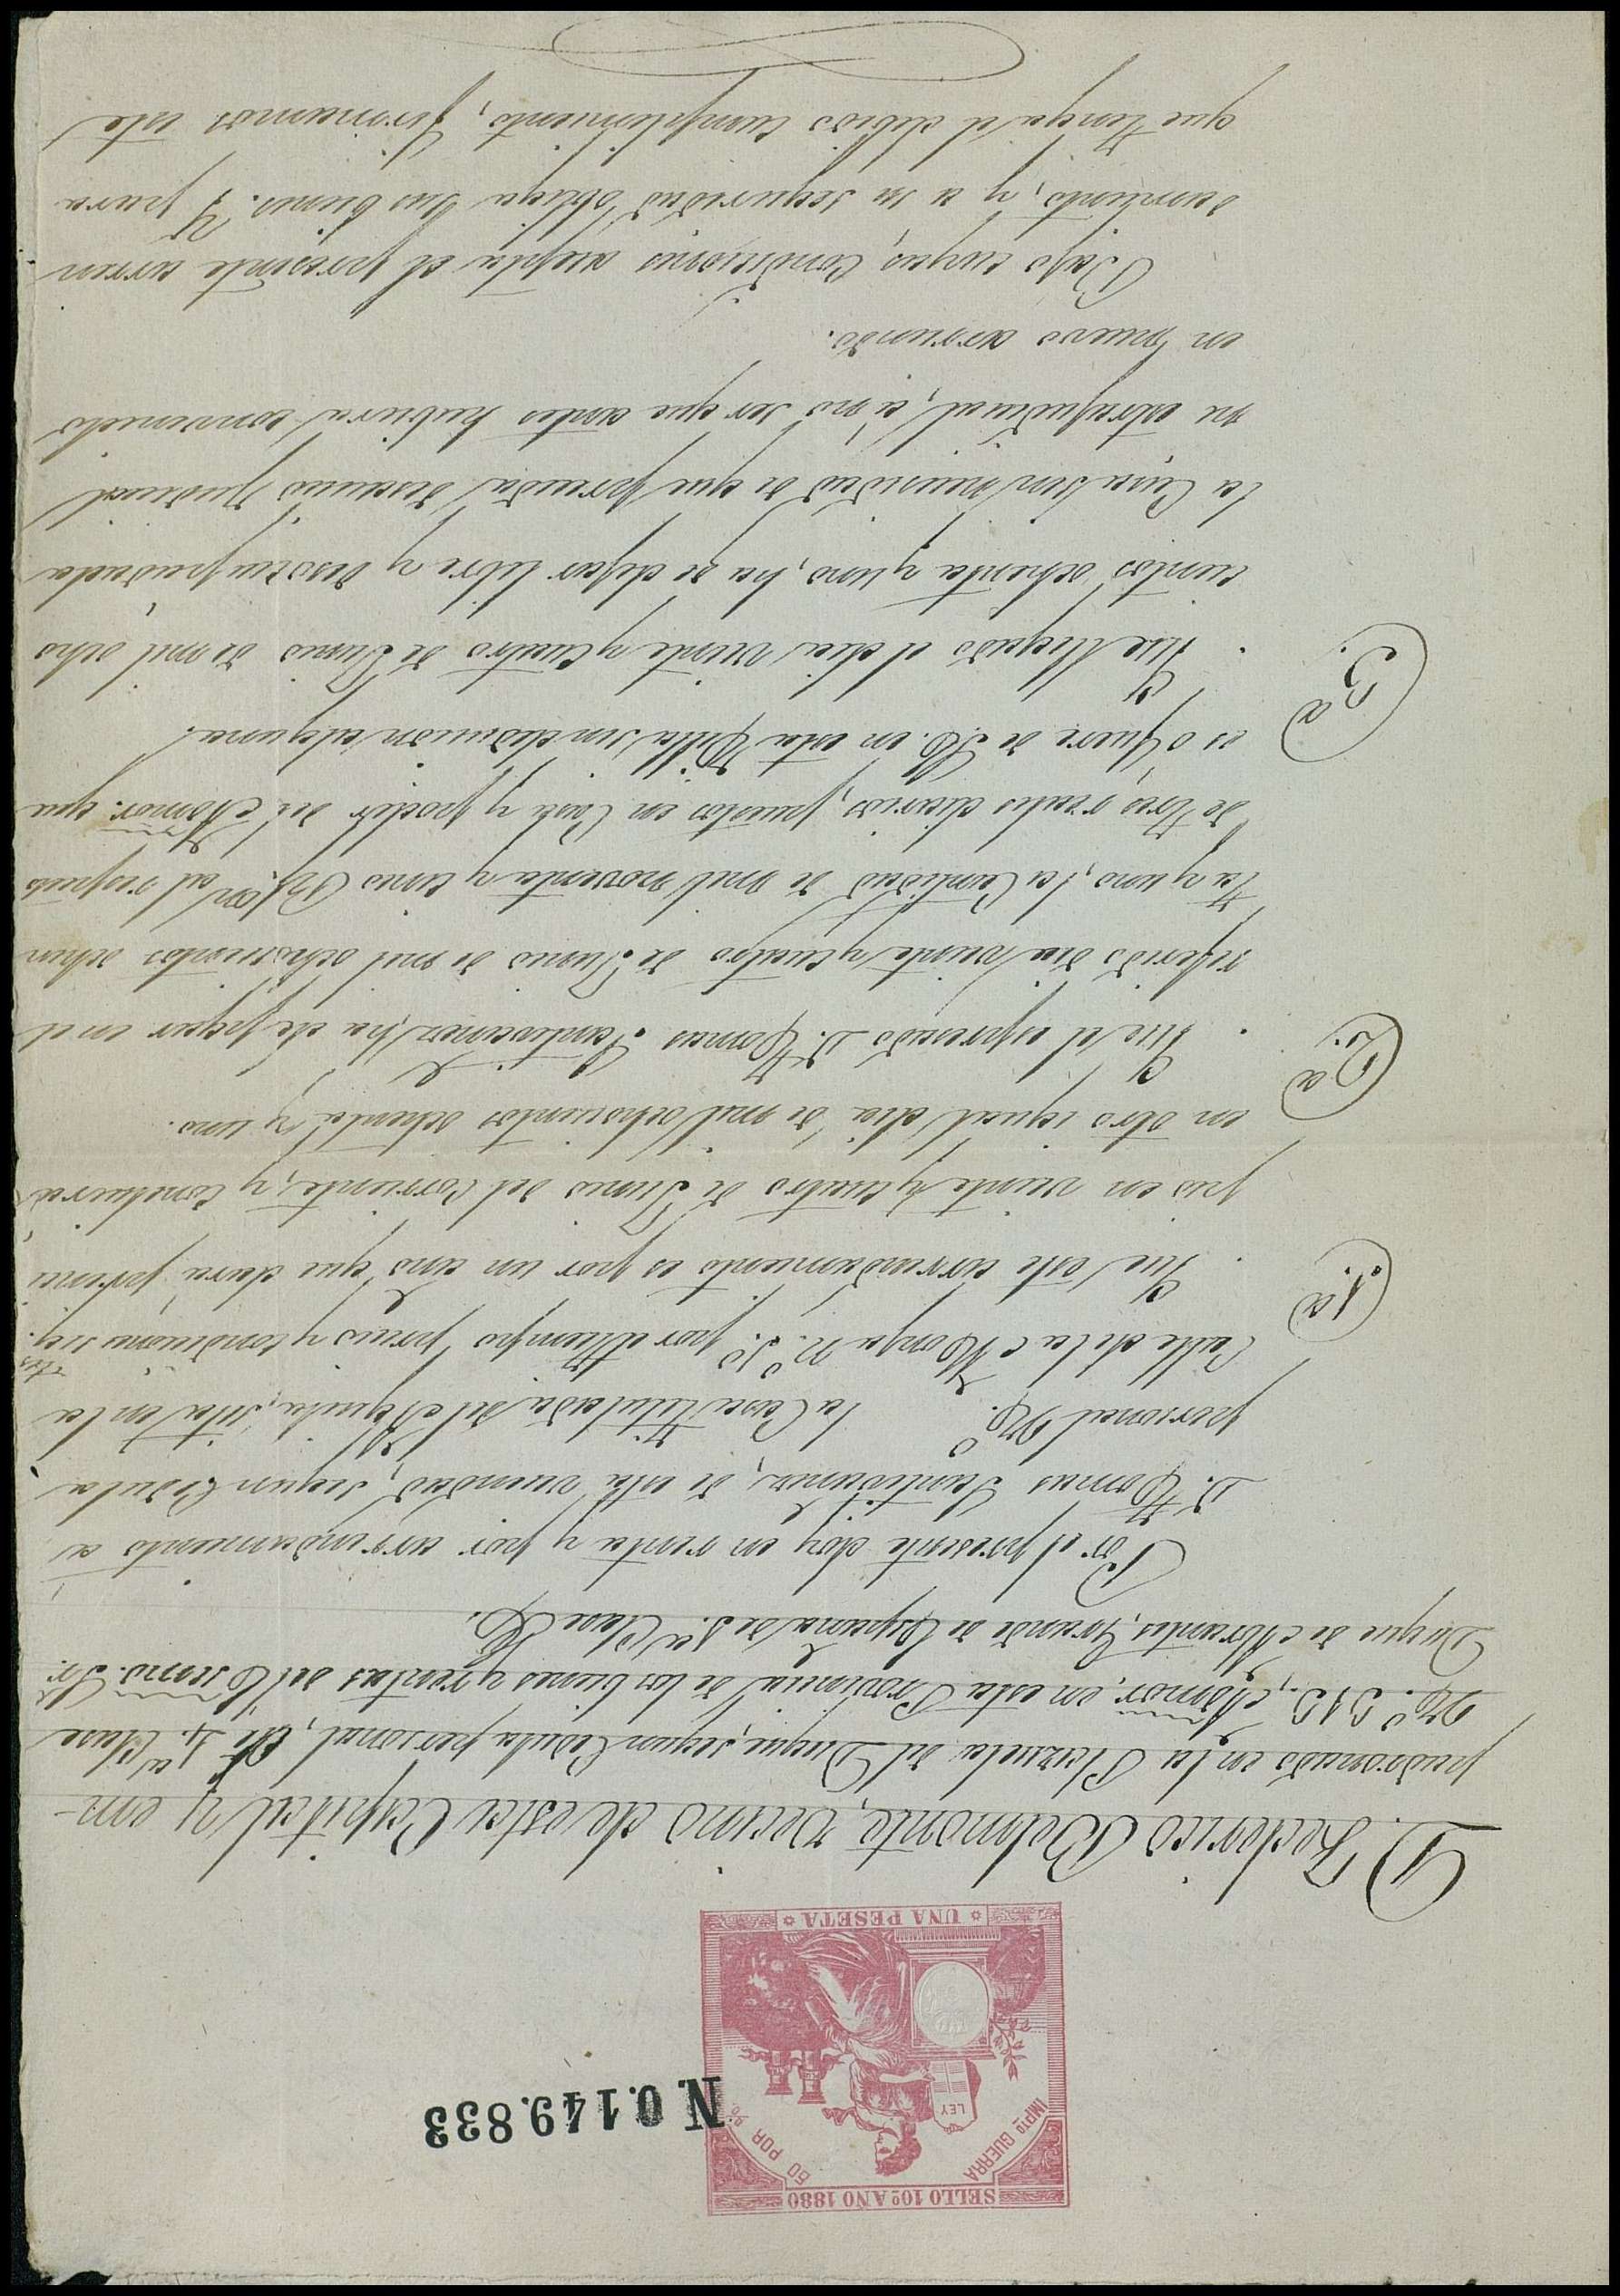 SELLO 10º AÑO 1880
IMPto GUERRA
50 POR %
LEY
UNA PESETA
N.0.149.833
D. Federico Belmonte, vecino de esta Capital y em-
padronado en la Plazuela del Duque, segun Cedula personal, de 4.ª Clase
Nº. 313, Admor. en esta Provincia de los bienes y rentas del Excmo. Sr.
Duque de Abrantes, Grande de España de 1.ª Clase &.
Por el presente doy en renta y por arrendamiento a
D. Tomas Santisima, de esta vecindad, segun Cedula
personal Nº. la Casa titulada del Aguila, sita en la
Calle de la Monja n.º 3º por el tiempo precio y condiciones sig.tes
1.ª Que este arrendamiento es por un año que dará princi
pio en veinte y cuatro de Junio del Corriente, y Concluirá
en otro igual dia de mil ochocientos ochenta y uno.
2.ª Que el espresado D. Tomas ha de pagar en el
referido dia veinte y cuatro de Junio de mil ochocientos ochen
ta y uno, la Cantidad de mil noventa y cinco al respeto
de doce reales diarios, puestos en Casa y poder del Admor. que
es ó fuere de S.E. en esta Villa sin deduccion alguna.
3.ª Que llegado el dia veinte y cuatro de Junio de mil ocho
cientos ochenta y uno, ha de dejar libre y desocupada
la Casa sin necesidad de que preceda desaucio judicial
ni estrajudicial, á no ser que antes hubiera convenido
en nuevo arriendo.
Bajo cuyas Condiciones acepta el presente arren
damiento, y a su seguridad obliga sus bienes. Y para
que tenga el debido cumplimiento, firmamos este